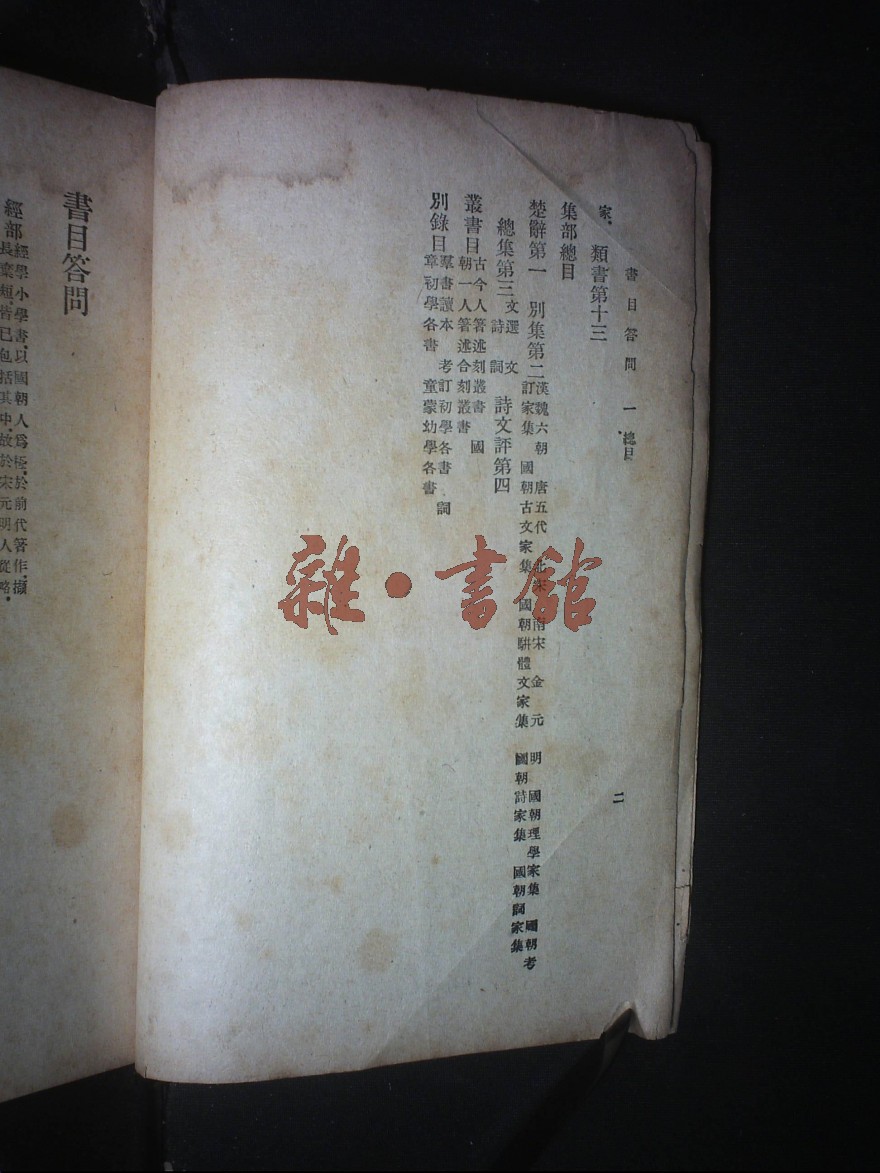 書目答問 一 總目 二
家、 類書第十三
集部總目
楚辭第一 別集第二 漢魏六朝 唐五代 北宋 南宋 金 元 明 國朝理學家集 國朝考
訂家集 國朝古文家集 國朝駢體文家集 國朝詩家集 國朝詞家集
總集第三 文選 文
詩 詞 詩文評第四
叢書目 古今人箸述刻叢書 國
朝一人箸述合刻叢書
別錄目 羣書讀本 考訂初學各書 詞
章初學各書 童蒙幼學各書
書目答問
經部 經學小學書、以國朝人爲極、於前代著作、擷
長棄短、皆已包括其中、故於宋元明人從略。
雜·書館